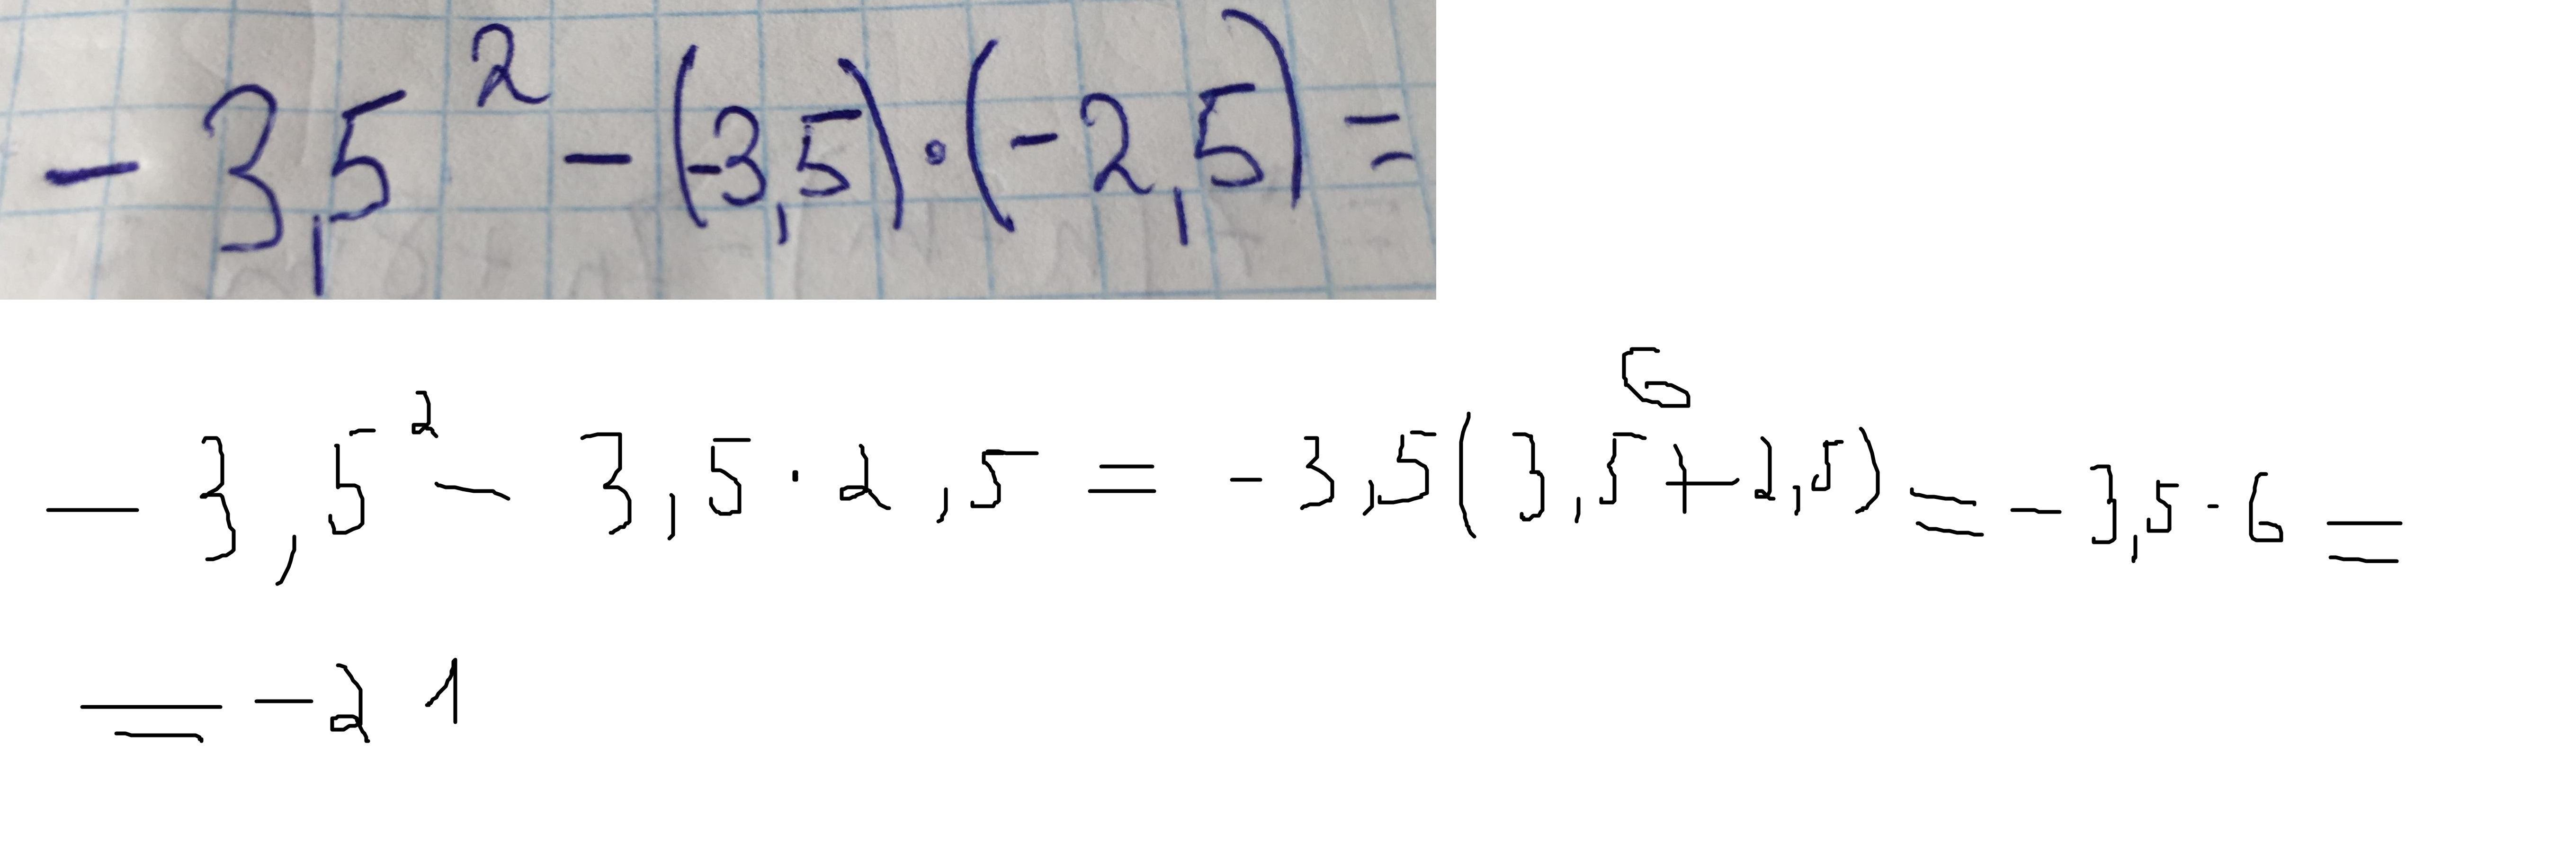 - 3,5² - (-3,5) · (-2,5) =
6
- 3,5² - 3,5 · 2,5 = - 3,5 ( 3,5 + 2,5 ) = - 3,5 · 6 =
= - 21